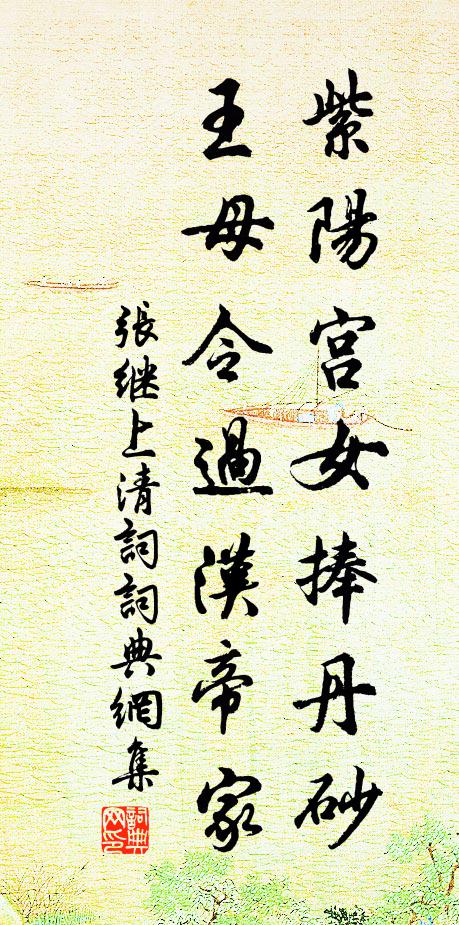 紫陽宫女捧丹砂
王母令過漢帝家
張继上清詞詞典網集
詞典网印